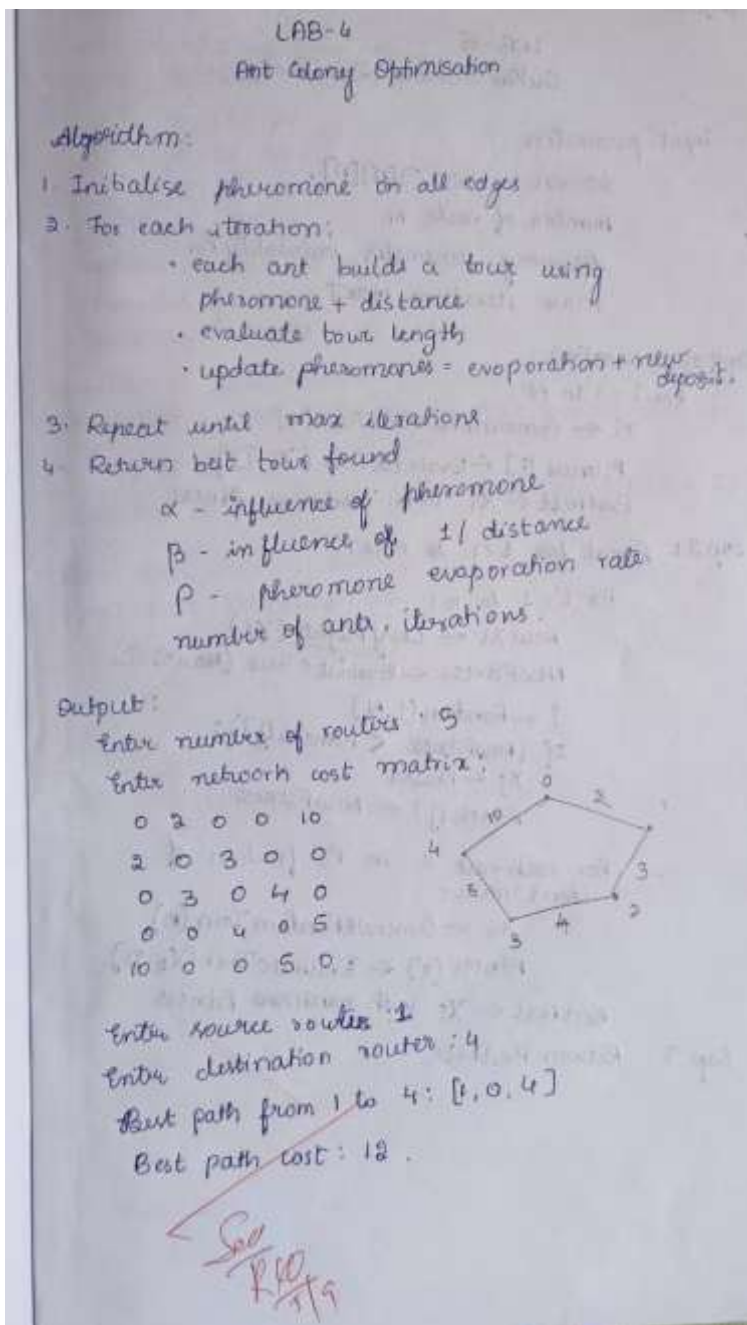 LAB-4
Ant Colony Optimisation
Algorithm:
1. Initialise pheromone on all edges
2. For each iteration:
• each ant builds a tour using
pheromone + distance
• evaluate tour length
• update pheromones = evoporation + new
deposit.
3. Repeat until max iterations
4. Return best tour found
α - influence of pheromone
β - influence of 1/distance
ρ - pheromone evaporation rate
number of ants, iterations.
Output:
Enter number of routers : 5
Enter network cost matrix:
0 2 0 0 10
2 0 3 0 0
0 3 0 4 0
0 0 4 0 5
10 0 0 5 0
0
10 2
4
5 3
3 4 2
Enter source router : 1
Enter destination router : 4
Best path from 1 to 4: [1, 0, 4]
Best path cost: 12.